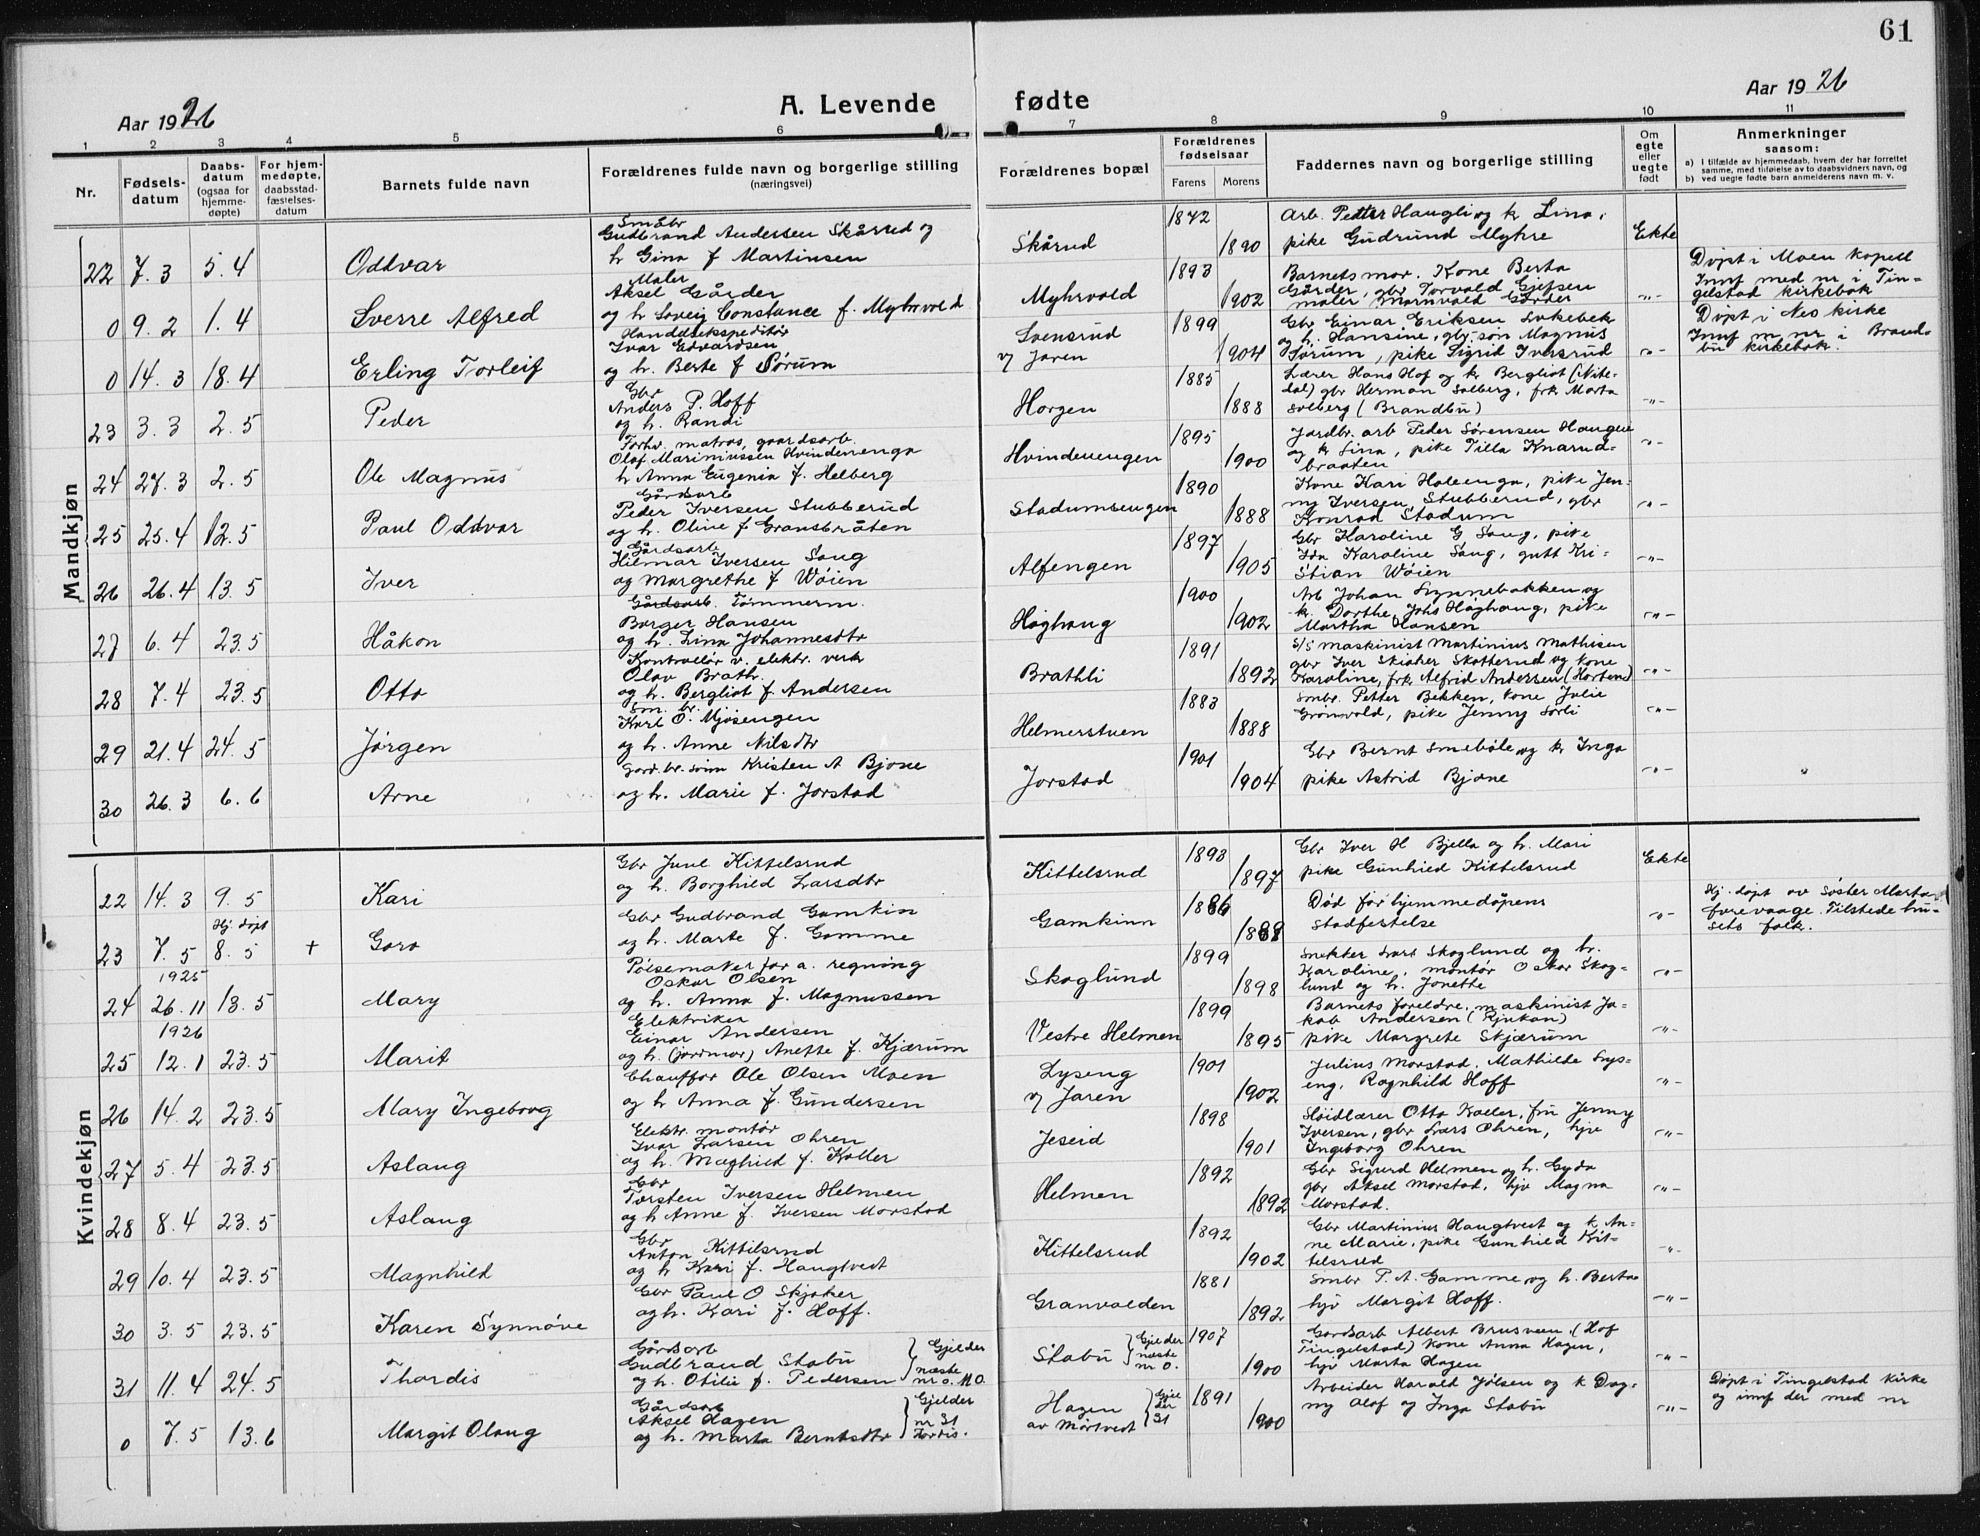 61
Aar 1926
A. Levende fødte
Aar 1926
1 2 3 4 5 6 7 8 9 10 11
Nr.
Fødsels-
datum
Daabs-
datum
(ogsaa for
hjemme-
døpte)
For hjem-
medøpte,
daabsstad-
fæstelses-
datum
Barnets fulde navn
Forældrenes fulde navn og borgerlige stilling
(næringsvei)
Forældrenes bopæl
Forældrenes
fødselsaar
Farens Morens
Faddernes navn og borgerlige stilling
Om
egte
eller
uegte
født
Anmerkninger
saasom:
a) I tilfælde av hjemmedaab, hvem der har forrettet
samme, med tilføielse av to daabsvidners navn, og
b) ved uegte fødte barn anmelderens navn m. v.
Mandkjøn
22 7.3 5.4 Oddvar
Småbr
Gudbrand Andersen Skårud og
h Gina f Martinsen
Skårud 1872 1890
Arb. Petter Haugli og k Lina,
pike Gudrund Myhre
Ekte
0 9.2 1.4 Sverre Alfred
Maler
Aksel Gårder
og h Soveig Constance f. Myhrvold
Myhrvold 1893 1902
Barnets mor. Kone Berta
Gårder, gbr Torvald Gjefsen
maler Marnvald Gårder
"
Døpt i Moen kapell
Innf med nr i Tin-
gelstad kirkebok
0 14.3 18.4 Erling Torleif
Handelsekspeditør
Ivar Edvardsen
og h. Berte f Sørum
Svensrud
v/ Jaren 1899 1904
Gbr Einar Eriksen
og h. Hansine, gbr. søn Magnus
Sørum, pike Sigrid Iversrud
"
Døpt i Nes kirke
Innf m nr i Brand-
bu kirkebok.
23 3.3 2.5 Peder
Gbr
Anders P. Hoff
og h. Randi
Horgen 1885 1888
Lærer Hans Hof og k Bergliot (Nite-
dal) gbr Herman Solberg, frk Marta
Solberg (Brandbu)
"
24 27.3 2.5 Ole Magnus
Forhv. matros, gaardsarb.
Olaf Marinussen Hvindenenga
h Anna Eugenia f. Helberg
Hvindenengen 1895 1900
Jordbr. arb Peder Sørensen Haugen
og k Lina, pike Tilla Knarud-
braaten
"
25 25.4 12.5 Paul Oddvar
Gårdsarb
Peder Iversen Stubberud
og h. Oline f Gransbråten
Stadumsengen 1890 1888
Kone Kari Holeenga, pike Jen-
ny Iversen Stubberud, gbr
Konrad Stadum
"
26 26.4 13.5 Iver
Gårdsarb
Hilmar Iversen Sang
og Margrethe f Wøien
Alfengen 1897 1905
Gbr Karoline G Sang, pike
Ida Karoline Sang, gutt Kri-
stian Wøien
"
27 6.4 23.5 Håkon
Gårdsarb. Tømmerm.
Borger Hansen
og h. Lina Johannesdtr
Høghaug 1900 1902
Arb Johan Synnebakken og
k. Dorthe Johs Høghaug, pike
Martha Hansen
"
28 7.4 23.5 Otto
Kontrollør v. elektr. verk
Olav Brath.
og h. Bergliot f. Andersen
Brathli 1891 1892
S/S maskinist Martinius Mathisen
gbr Iver Skiaker Skatterud og kone
Karoline, frk. Alfrid Andersen (Horten)
"
29 21.4 24.5 Jørgen
Sm. br.
Karl O. Mjøsengen
og h. Anne Nilsdtr
Helmerstuen 1883 1888
Smbr. Petter Bekken, kone Julie
Grønvold, pike Jenny Sørli
"
30 26.3 6.6 Arne
Gard.br.søn Kristen A Bjone
og h. Marie f. Jorstad
Jorstad 1901 1904
Gbr Bernt Smebøle og k Inga
pike Astrid Bjone
"
Kvindekjøn
22 14.3 9.5 Kari
Gbr Juul Kittelsrud
og h. Borghild Larsdtr
Kittelsrud 1893 1897
Gbr Iver H Bjella og h. Mari
pike Gunhild Kittelsrud
Ekte
23 7.5 Hj. døpt 8.5 + Goro
Gbr Gudbrand Gamkin
og h. Marte f. Gamme
Gamkinn 1886 1888
Død før hjemmedåpens
Stadfestelse
"
Hj. døpt av Søster Marta
Forevaage. Tilstede hu-
sets folk.
24 1925 26.11 13.5 Mary
Pølsemaker for a. regning
Oskar Olsen
og h. Anna f. Magnussen
Skoglund 1899 1898
Snekker Lars Skoglund og h.
Karoline, montør Oskar Skog-
lund og h. Jonette
"
25 1926 12.1 23.5 Marit
Elektriker
Einar Andersen
og h. (jordmor) Anette f. Kjærum
Vestre Helmen 1899 1895
Barnets foreldre, maskinist Ja-
kob Andersen (Rjukan)
pike Margrete Skjærum
"
26 14.2 23.5 Mary Ingeborg
Chauffør Ole Olsen Moen
og h Anna f. Gundersen
Lyseng
v/ Jaren 1901 1902
Julius Morstad, Mathilde Lys-
eng, Ragnhild Hoff
"
27 5.4 23.5 Aslaug
Elektr. montør
Ivar Larsen Ohren
og h. Maghild f. Koller
Jeseid 1898 1901
Høidlærer Otto Koller, fru Jenny
Iversen, gbr Lars Ohren, hjv
Ingeborg Ohren
"
28 8.4 23.5 Aslaug
Gbr
Torsten Iversen Helmen
og h Anne f. Iversen Morstad
Helmen 1892 1892
Gbr Sigurd Helmen og h. Gyda
gbr Aksel Morstad, hjv Magna
Morstad.
"
29 10.4 23.5 Magnhild
Gbr
Anton Kittilsrud
og h Kari f. Haugtvedt
Kittelsrud 1892 1902
Gbr Martinius Haugtvedt og k An-
ne Marie, pike Gunhild Kit-
telsrud
"
30 3.5 23.5 Karen Synnøve
Gbr Paul O Skjaker
og h. Kari f. Hoff.
Granvolden 1881 1892
Smbr P. A. Gamme og h. Berta
hjv Margit Hoff.
"
31 11.4 24.5 Thordis
Gårdsarb
Gudbrand Stabu
og h. Otilie f. Pedersen
Gjelder
næste
nr 0. No.
Stabu Gjelder
næste
nr 0. 1907 1900
Gardsarb Albert Brusveen, (Hof
Tingelstad) Kone Anna Hagen,
hjv Marta Hagen
"
0 7.5 13.6 Margit Olaug
Gårdsarb
Aksel Hagen
og h. Marta Berntsdtr
Gjelder
nr 31
Tordis.
Hagen
av Mørtvedt Gjel
der
31 1891 1900
Arbeider Harald Jølsen og k Dag-
ny Olaf og Inga Stabu
"
Døpt i Tingelstad kirke
og innf der med nr